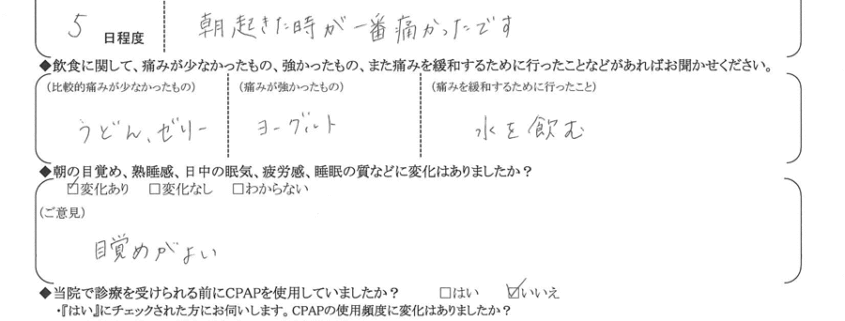 5 日程度 朝起きた時が一番痛かったです
◆飲食に関して、痛みが少なかったもの、強かったもの、また痛みを緩和するために行ったことなどがあればお聞かせください。
(比較的痛みが少なかったもの) (痛みが強かったもの) (痛みを緩和するために行ったこと)
うどん、ゼリー ヨーグルト 水を飲む
◆朝の目覚め、熟睡感、日中の眠気、疲労感、睡眠の質などに変化はありましたか?
☑変化あり □変化なし □わからない
(ご意見)
目覚めがよい
◆当院で診療を受けられる前にCPAPを使用していましたか? □はい ☑いいえ
・『はい』にチェックされた方にお伺いします。CPAPの使用頻度に変化はありましたか?